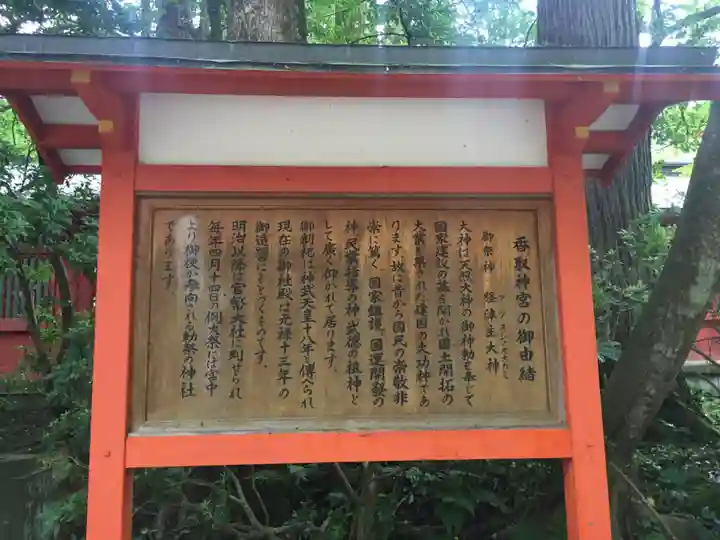 香取神宮の御由緒
御祭神 経津主大神
大神は天照大神の御神勅を奉じて
国家建設の基を開かれ国土開拓の
大業を果された建国の大功神であ
ります。故に昔から国民の崇敬非
常に篤く、国家鎮護、国運開発の
神、民業指導の神、武徳の祖神と
して廣く仰がれて居ります。
御創祀は神武天皇十八年と傳へられ
現在の御社殿は元禄十三年の
御造営にもとづくものです。
明治以降は官幣大社に列せられ
毎年四月十四日の例大祭には宮中
より御使が参向される勅祭の神社
であります。